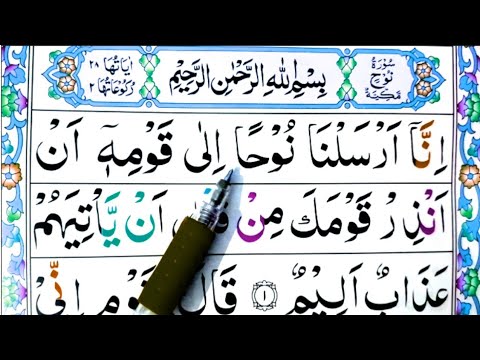 سُوْرَةُ
نُوْحٍ
مَكِّيَّةٌ
بِسْمِ اللهِ الرَّحْمٰنِ الرَّحِيْمِ
اٰيَاتُهَا ٢٨
رُكُوْعَاتُهَا ٢
اِنَّاۤ اَرْسَلْنَا نُوْحًا اِلٰى قَوْمِهٖۤ اَنْ
اَنْذِرْ قَوْمَكَ مِنْ اَنْ يَّاْتِيَهُمْ
عَذَابٌ اَلِيْمٌ ١ قَالَ اِنِّيْ